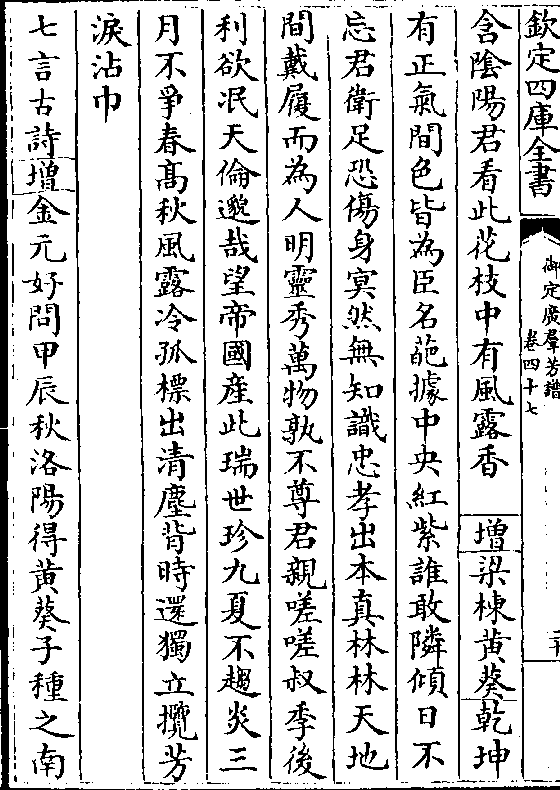 欽定四庫全書
御定廣羣芳譜
卷四十七
含陰陽君看此花枝中有風露香 增梁棟黃葵乾坤
有正氣間色皆為臣名葩據中央紅紫誰敢隣傾日不
忘君衛足恐傷身冥然無知識忠孝出本真林林天地
間戴履而為人明靈秀萬物孰不尊君親嗟嗟叔季後
利欲泯天倫邈哉望帝國產此瑞世珍九夏不趨炎三
月不爭春髙秋風露冷孤標出清塵背時還獨立攬芳
淚沾巾
七言古詩增金元好問甲辰秋洛陽得黃葵子種之南